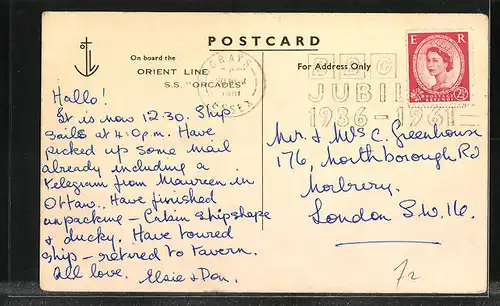 POSTCARD
On board the
ORIENT LINE
S.S. "ORCADES"
For Address Only
GRAYS
1961
ESSEX
BBC
JUBIL
1936-1961
E R
POSTAGE REVENUE
2½
Hallo!
It is now 12.30. Ship
sails at 4.0p.m. Have
picked up some mail
already including a
telegram from Maureen in
Ottaw.. Have finished
unpacking - Cabin shipshape
& ducky. Have toured
ship - retired to tavern.
All love. Elsie & Don.
Mr. & Mrs C. Greenhouse
176, Northborough Rd
Norbury.
London S.W.16.
72